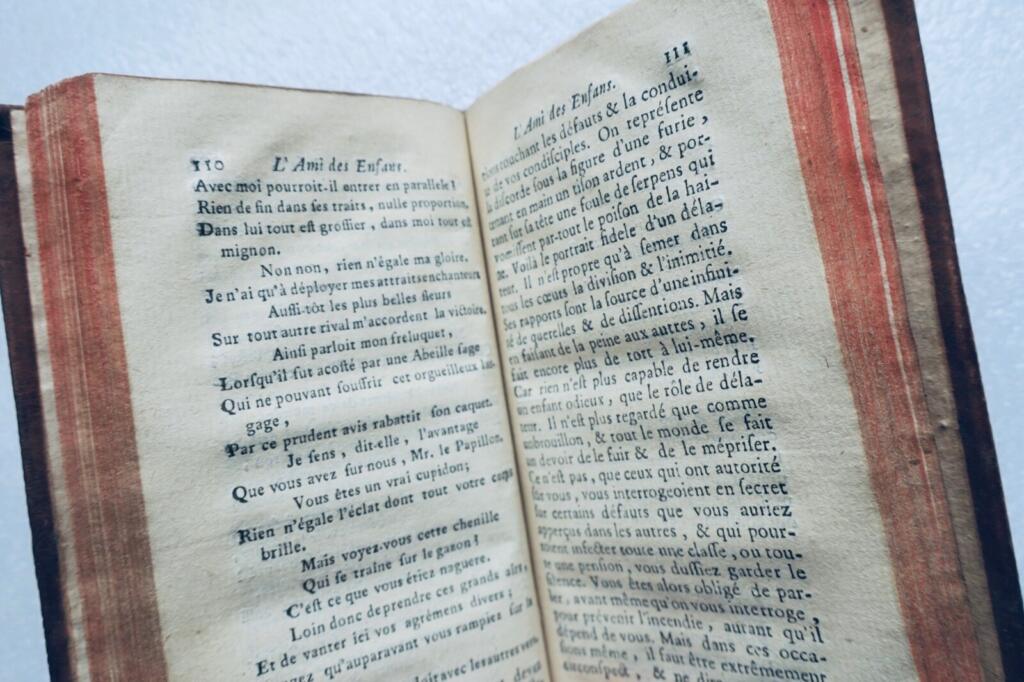 110 L'Ami des Enfans.
Avec moi pourroit-il entrer en parallele ?
Rien de fin dans ſes traits, nulle proportion,
Dans lui tout eſt groſſier, dans moi tout eſt
mignon.
Non non, rien n'égale ma gloire.
Je n'ai qu'à déployer mes attraits enchanteurs
Auſſi-tôt les plus belles fleurs
Sur tout autre rival m'accordent la victoire.
Ainſi parloit mon freluquet,
Lorſqu'il fut acoſté par une Abeille ſage
Qui ne pouvant ſouffrir cet orgueilleux lan-
gage,
Par ce prudent avis rabattit ſon caquet.
Je ſens, dit-elle, l'avantage
Que vous avez ſur nous, Mr. le Papillon,
Vous êtes un vrai cupidon;
Rien n'égale l'éclat dont tout votre corps
brille.
Mais voyez-vous cette chenille
Qui ſe traîne ſur le gazon ?
C'eſt ce que vous étiez naguere.
Loin donc de prendre ces grands airs,
Et de vanter ici vos agrémens divers;
qu'auparavant vous rampiez ſur la
avec les autres vers,
111
L'Ami des Enfans.
touchant les défauts & la condui-
te de vos condiſciples. On repréſente
la diſcorde ſous la figure d'une furie,
tenant en main un tiſon ardent, & por-
tant ſur ſa tête une foule de ſerpens qui
vomiſſent par-tout le poiſon de la hai-
ne. Voilà le portrait fidele d'un déla-
teur. Il n'eſt propre qu'à ſemer dans
tous les cœurs la diviſion & l'inimitié.
Ses rapports ſont la ſource d'une infini-
té de querelles & de diſſentions. Mais
en faiſant de la peine aux autres, il ſe
fait encore plus de tort à lui-même.
Car rien n'eſt plus capable de rendre
un enfant odieux, que le rôle de déla-
teur. Il n'eſt plus regardé que comme
un brouillon, & tout le monde ſe fait
un devoir de le fuir & de le mépriſer.
Ce n'eſt pas, que ceux qui ont autorité
ſur vous, vous interrogeoient en ſecret
ſur certains défauts que vous auriez
apperçus dans les autres, & qui pour-
roient infecter toute une claſſe, ou tou-
te une penſion, vous duſſiez garder le
ſilence. Vous êtes alors obligé de par-
ler, avant même qu'on vous interroge,
pour prévenir l'incendie, autant qu'il
dépend de vous. Mais dans ces occa-
ſions même, il faut être extrêmement
circonſpect, & ne